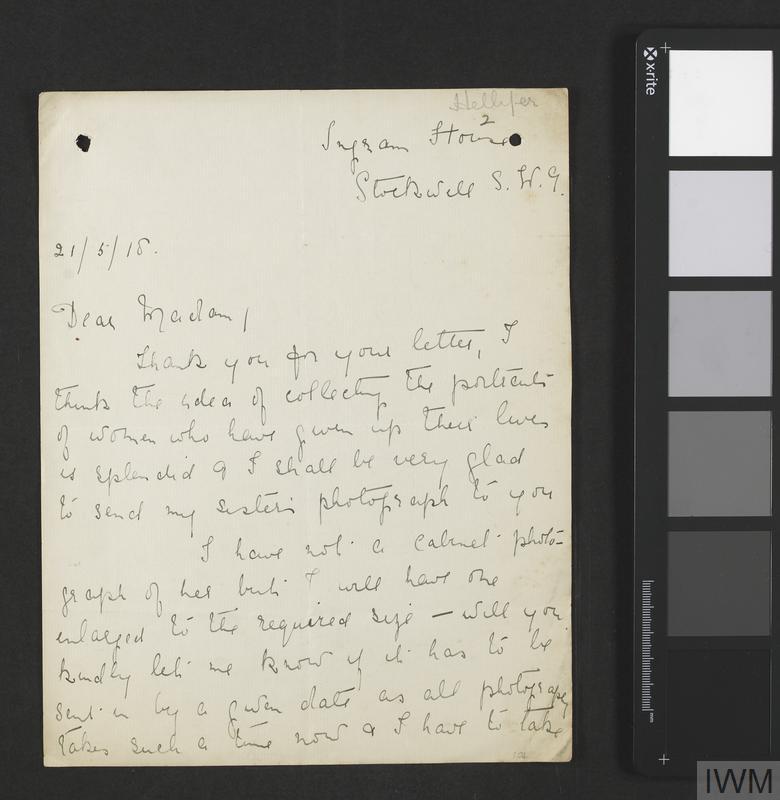 2
Ingram House
Stockwell S.W.9.
21/5/18.
Dear Madam,
Thank you for your letter, I
think the idea of collecting the portraits
of women who have given up their lives
is splendid & I shall be very glad
to send my sister's photograph to you
I have not a cabinet photo-
graph of her but I will have one
enlarged to the required size – will you
kindly let me know if it has to be
sent in by a given date as all photography
takes such a time now & I have to take
x-rite
mm
IWM